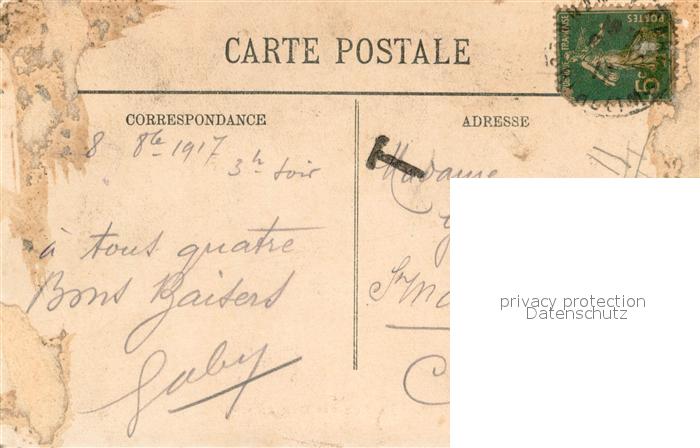 CARTE POSTALE
POSTES
5c
CORRESPONDANCE
ADRESSE
8 8bre 1917
3h soir
à tous quatre
Bons Baisers
Gaby
T
Madame
privacy protection
Datenschutz